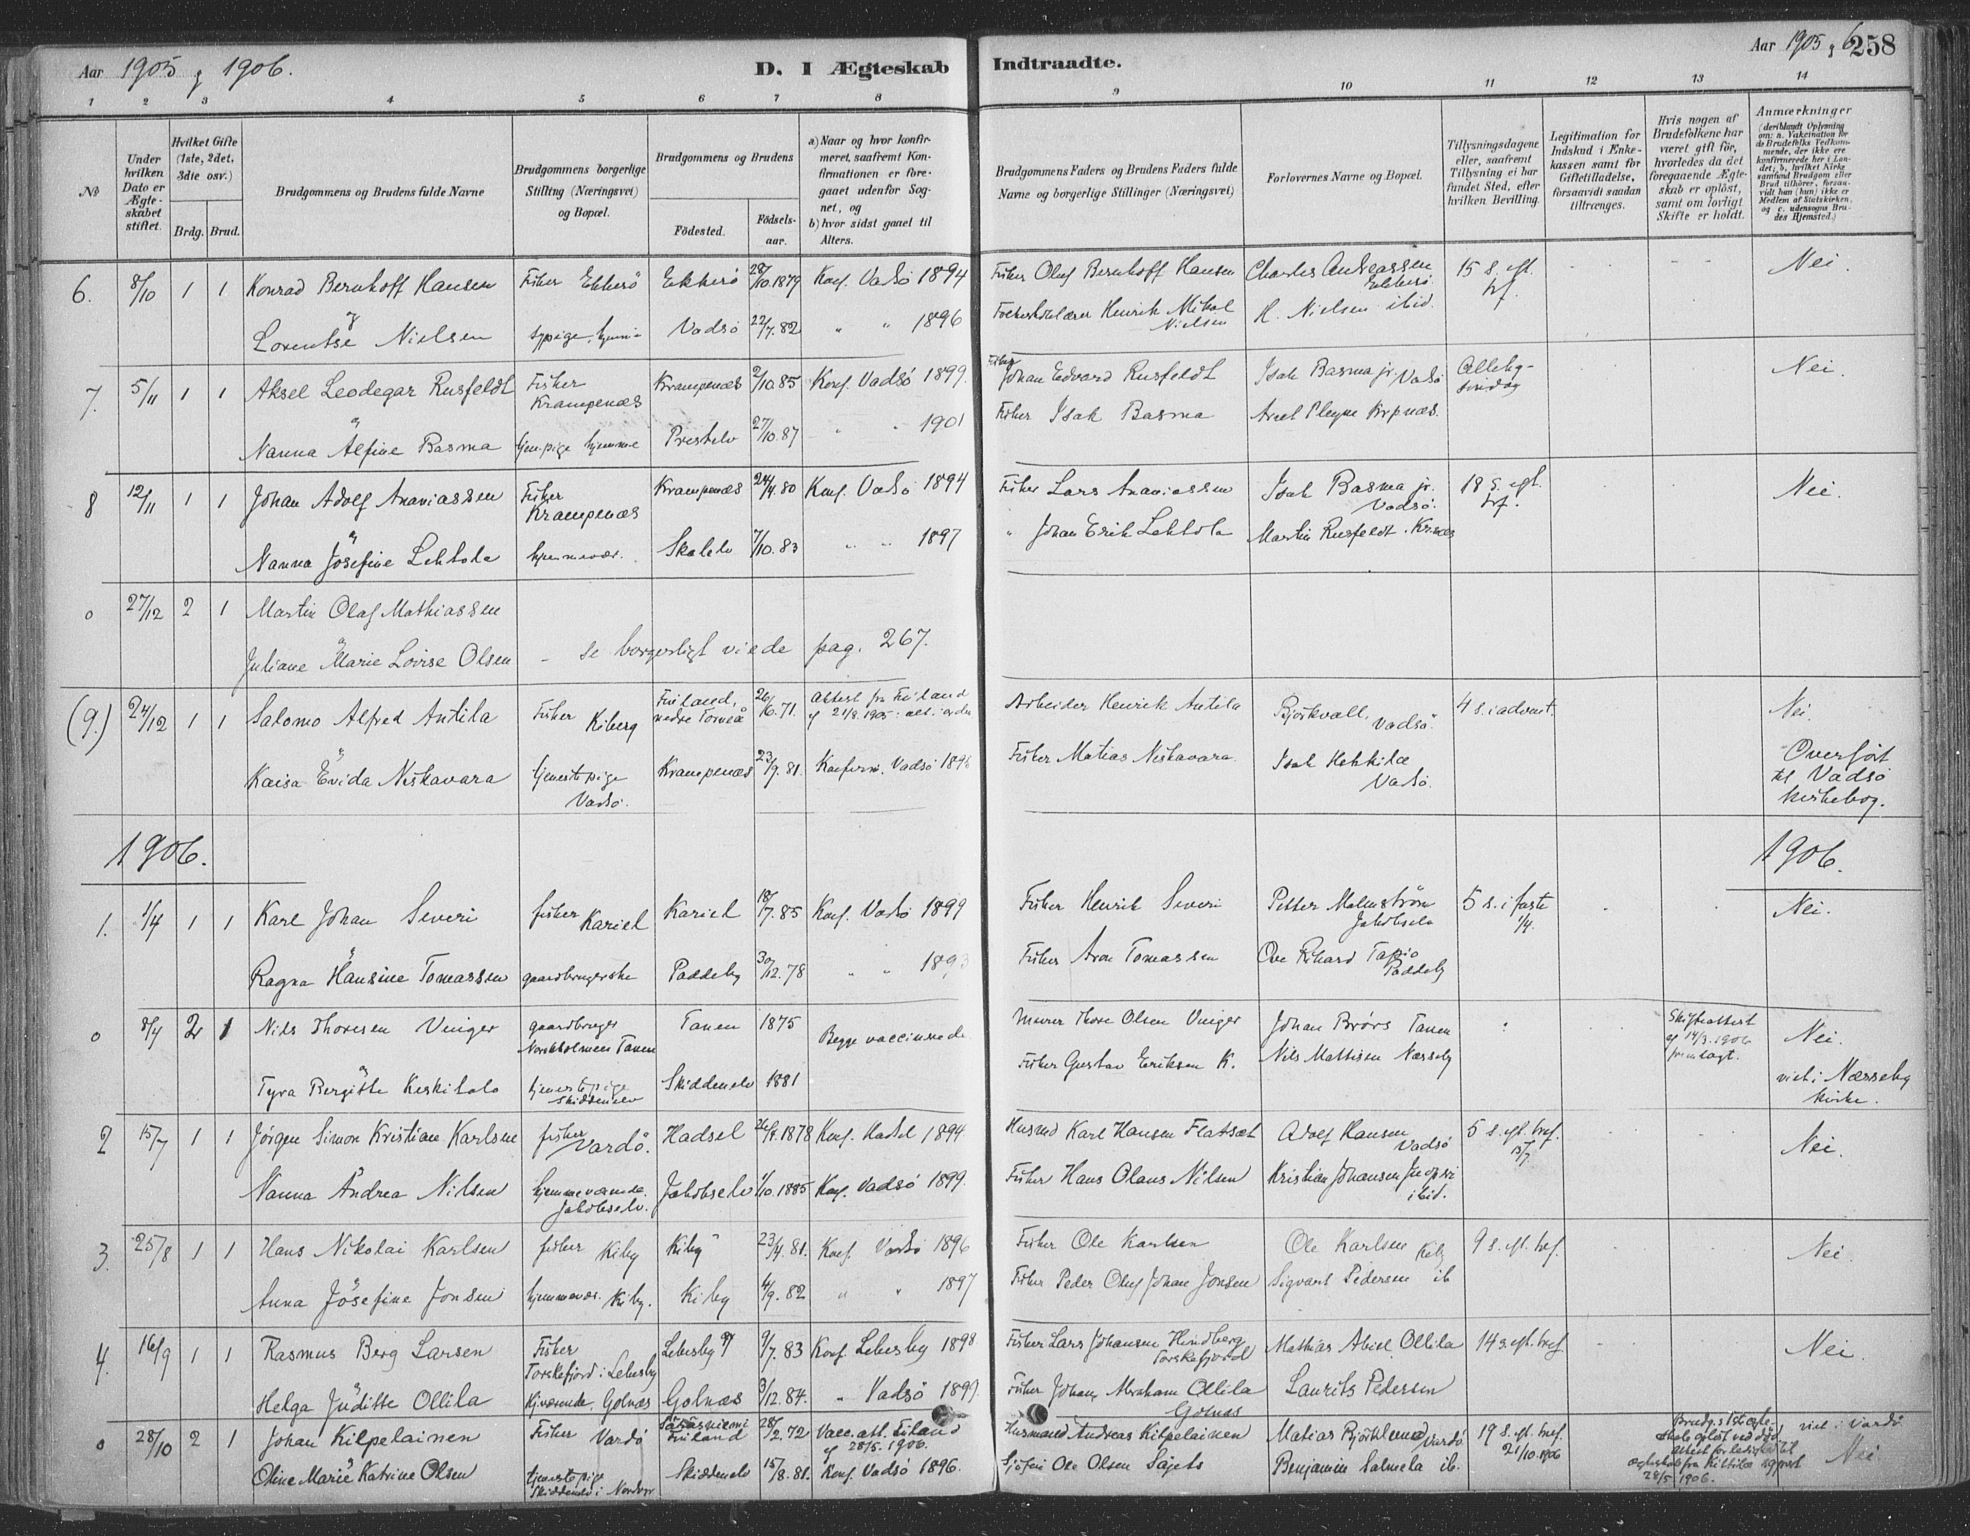 Aar 1905 og 1906.
D. I Ægteskab
Indtraadte.
Aar 1905 og 6
258
1 2 3 4 5 6 7 8 9 10 11 12 13 14
№
Under hvilken Dato er Ægteskabet stiftet.
Hvilket Gifte (1ste, 2det, 3die osv.)
Brdg. Brud.
Brudgommens og Brudens fulde Navne
Brudgommens borgerlige Stilling (Næringsvei) og Bopæl.
Brudgommens og Brudens
Födested.
Födselsaar.
a) Naar og hvor konfirmeret, saafremt Konfirmationen er foregaaet udenfor Sognet, og
b) hvor sidst gaaet til Alters.
Brudgommens Faders og Brudens Faders fulde Navne og borgerlige Stillinger (Næringsvei)
Forlovernes Navne og Bopæl.
Tillysningsdagene eller, saafremt Tillysning ei har fundet Sted, efter hvilken Bevilling.
Legitimation for Indskud i Enkekassen samt for Giftetilladelse, forsaavidt saadan tiltrænges.
Hvis nogen af Brudefolkene har været gift för, hvorledes da det foregaaende Ægteskab er oplöst, samt om lovligt Skifte er holdt.
Anmærkninger
(deriblandt Oplysning om: a. Vakcination for de Brudefolks Vedkommende, der ikke ere konfirmerede her i Landet; b. hvilket Kirkesamfund Brudgom eller Brud tilhörer, forsaavidt han (hun) ikke er Medlem af Statskirken, og c. udensogns Brudes Hjemsted.)
6. 8/10 1 1 Konrad Bernhoff Hansen Fisker Ekkerö Ekkerö 28/10.1879 Konf. Vadsö 1894 Fisker Oluf Bernhoff Hansen Charles Andreassen Ekkerö 15 s. eft. trf. Nei
og
Lorentse Nielsen sypige, hjemme Vadsö 22/7.82 " " 1896 Henrik Mikal Nielsen H. Nielsen ibid.
7. 5/11 1 1 Aksel Leodegar Rusfeldt Fisker Krampenæs Krampenæs 2/10.85 Konf. Vadsö 1899. Fisker Johan Edvard Rusfeldt Isak Basma jr. Vadsö Allehg-söndag Nei.
Nanna Alfine Basma tjenpige hjemme Prestelv 27/10.87 " " 1901 Fisker Isak Basma Axel Pleym Krpnæs.
8 12/11 1 1 Johan Adolf Ananiassen Fisker Krampenæs Krampenæs 24/4.80 Konf. Vadsö 1894 Fisker Lars Ananiassen Isak Basma jr. Vadsö. 18 s. eft. trf. Nei.
Nanna Josefine Lehtola hjemmevær. Skalelv 7/10.83 " " 1897 " Johan Erik Lehtola Martin Rusfeldt. Krnæs
0 27/12 2 1 Martin Olaf Mathiassen
Juliane Marie Lovise Olsen - se borgerligt viede pag. 267.
(9.) 24/12 1 1 Salomo Alfred Antila Fisker Kiberg Finland, nedre Torneå 26/6.71. attest fra Finland af 21/8.1905: alt i orden Arbeider Henrik Antila Björkvall, Vadsö. 4 s. i advent. Nei.
Kaisa Evida Niskavara tjenestepige Vadsö. Krampenæs 23/9.81. Konfirm. Vadsö 1896 Fisker Matias Niskavara Isak Heikkilæ Vadsö. Overfört til Vadsö kirkebog.
1906. 1906.
1. 1/4 1 1 Karl Johan Severi fisker Kariel Kariel 18/7.85 Konf. Vadsö 1899 Fisker Henrik Severi Petter Malmström Jakobselv 5 s. i faste 1/4. Nei.
Ragna Hansine Tomassen gaardbrugerske Paddeby 30/12.78 " " 1893 Fisker Aron Tomassen Ove Rikard Tapio Paddeby
0 8/7 2 1 Nils Thoresen Vinger gaardbruger Norskholmen Tanen Tanen 1875 Begge vaccinerede Murer Thore Olsen Vinger Johan Brörs Tanen Skifteattest af 14/3.1906 fremlagt. Nei.
Tyra Bergitte Keskitalo tjenestepige Skiddenelv Skiddenelv 1881 Fisker Gustav Eriksen K. Nils Mattisen Næsseby viet i Næsseby kirke.
2 15/7 1 1 Jörgen Simon Kristian Karlsen fisker Vardö. Hadsel 26/8.1878 Konf. Hadsel 1894 Husmd Karl Hansen Flatsæt Adolf Hansen Vadsö 5 s. eft. tref. 15/7. Nei.
Nanna Andrea Nilsen hjemmeværende. Jakobselv. Jakobselv 1/10.1885 Konf. Vadsö 1899. Fisker Hans Olaus Nilsen Kristian Johansen ibid.
3. 25/8 1 1 Hans Nikolai Karlsen fisker Kiby Kiby 23/4.81. Konf. Vadsö 1896 Fisker Ole Karlsen Ole Karlsen Kiby 9 s. eft. tref. Nei.
Anna Josefine Jonsen hjemmevær. Kiby. Kiby 4/9.82 " " 1897 Fisker Peder Oluf Johan Jonsen Sigvart Pedersen ib
4. 16/9 1 1 Rasmus Berg Larsen Fisker Torskefjord i Lebesby Lebesby 9/7.83 Konf. Lebesby 1898 Fisker Lars Johansen Hindberg Torskefjord Mathias Abiel Ollila 14 s. eft. tref Nei.
Helga Juditte Ollila Hjværende, Golnæs Golnæs 3/12.84. " Vadsö 1899. Fisker Johan Abraham Ollila Golnæs Laurits Pedersen
0 28/10 2 1 Johan Kilpelainen Fisker Vardö Finland 28/2.72 Vacc.att. Finland af 28/5.1906. Husmand Andreas Kilpelainen Matias Björklund Vardö 19 s. eft. tref. 21/10.1906 Brudg.s 1st ægteskab oplöst ved död, attest for ledighed til ægteskab fra Kittilæ sognet 28/5 1906. viet i Vardö Nei
Oline Marie Katrine Olsen tjenestepige Skiddenelv i Skiddenelv 15/8.81. Konf. Vadsö 1896. Ole Olsen Benjamin Salmela ib.